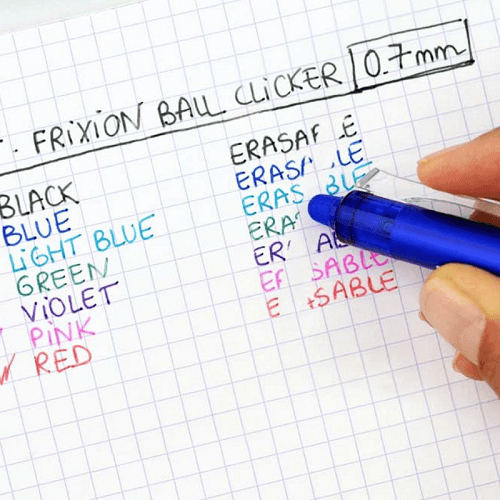 FRIXION BALL CLICKER 0.7mm
BLACK
BLUE
LIGHT BLUE
GREEN
VIOLET
PINK
RED
ERASA E
ERAS LE
ERAS BLE
ERA
ER AB
E SABLE
E SABLE